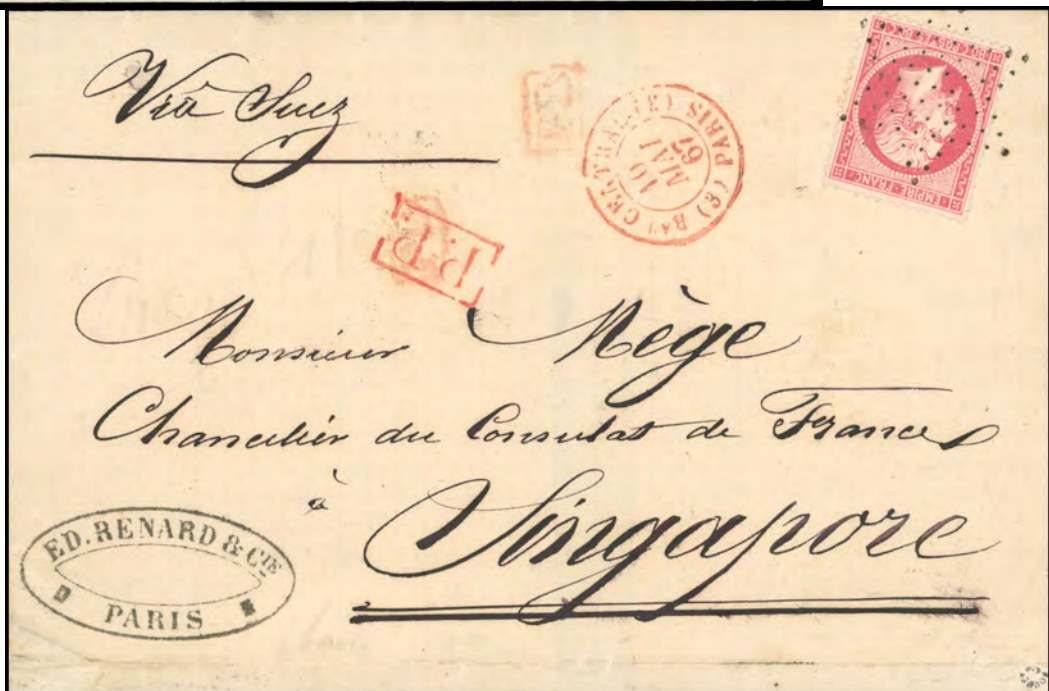 Viâ Suez
PARIS (3) Bau CENTRAL (3)
10
MAI
67
EMPIRE · FRANC ·
P.P.
Monsieur Mège
Chancelier du Consulat de France
à
Singapore
ED. RENARD & CIE
PARIS